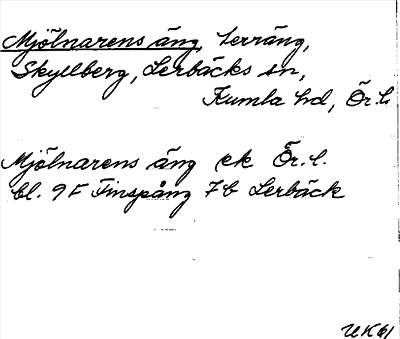 Mjölnarens äng, terräng,
Skyllberg, Lerbäcks sn,
Kumla hd, Ör.l.
Mjölnarens äng ek Ör.l.
bl. 9F Finspång 7b Lerbäck
UK61